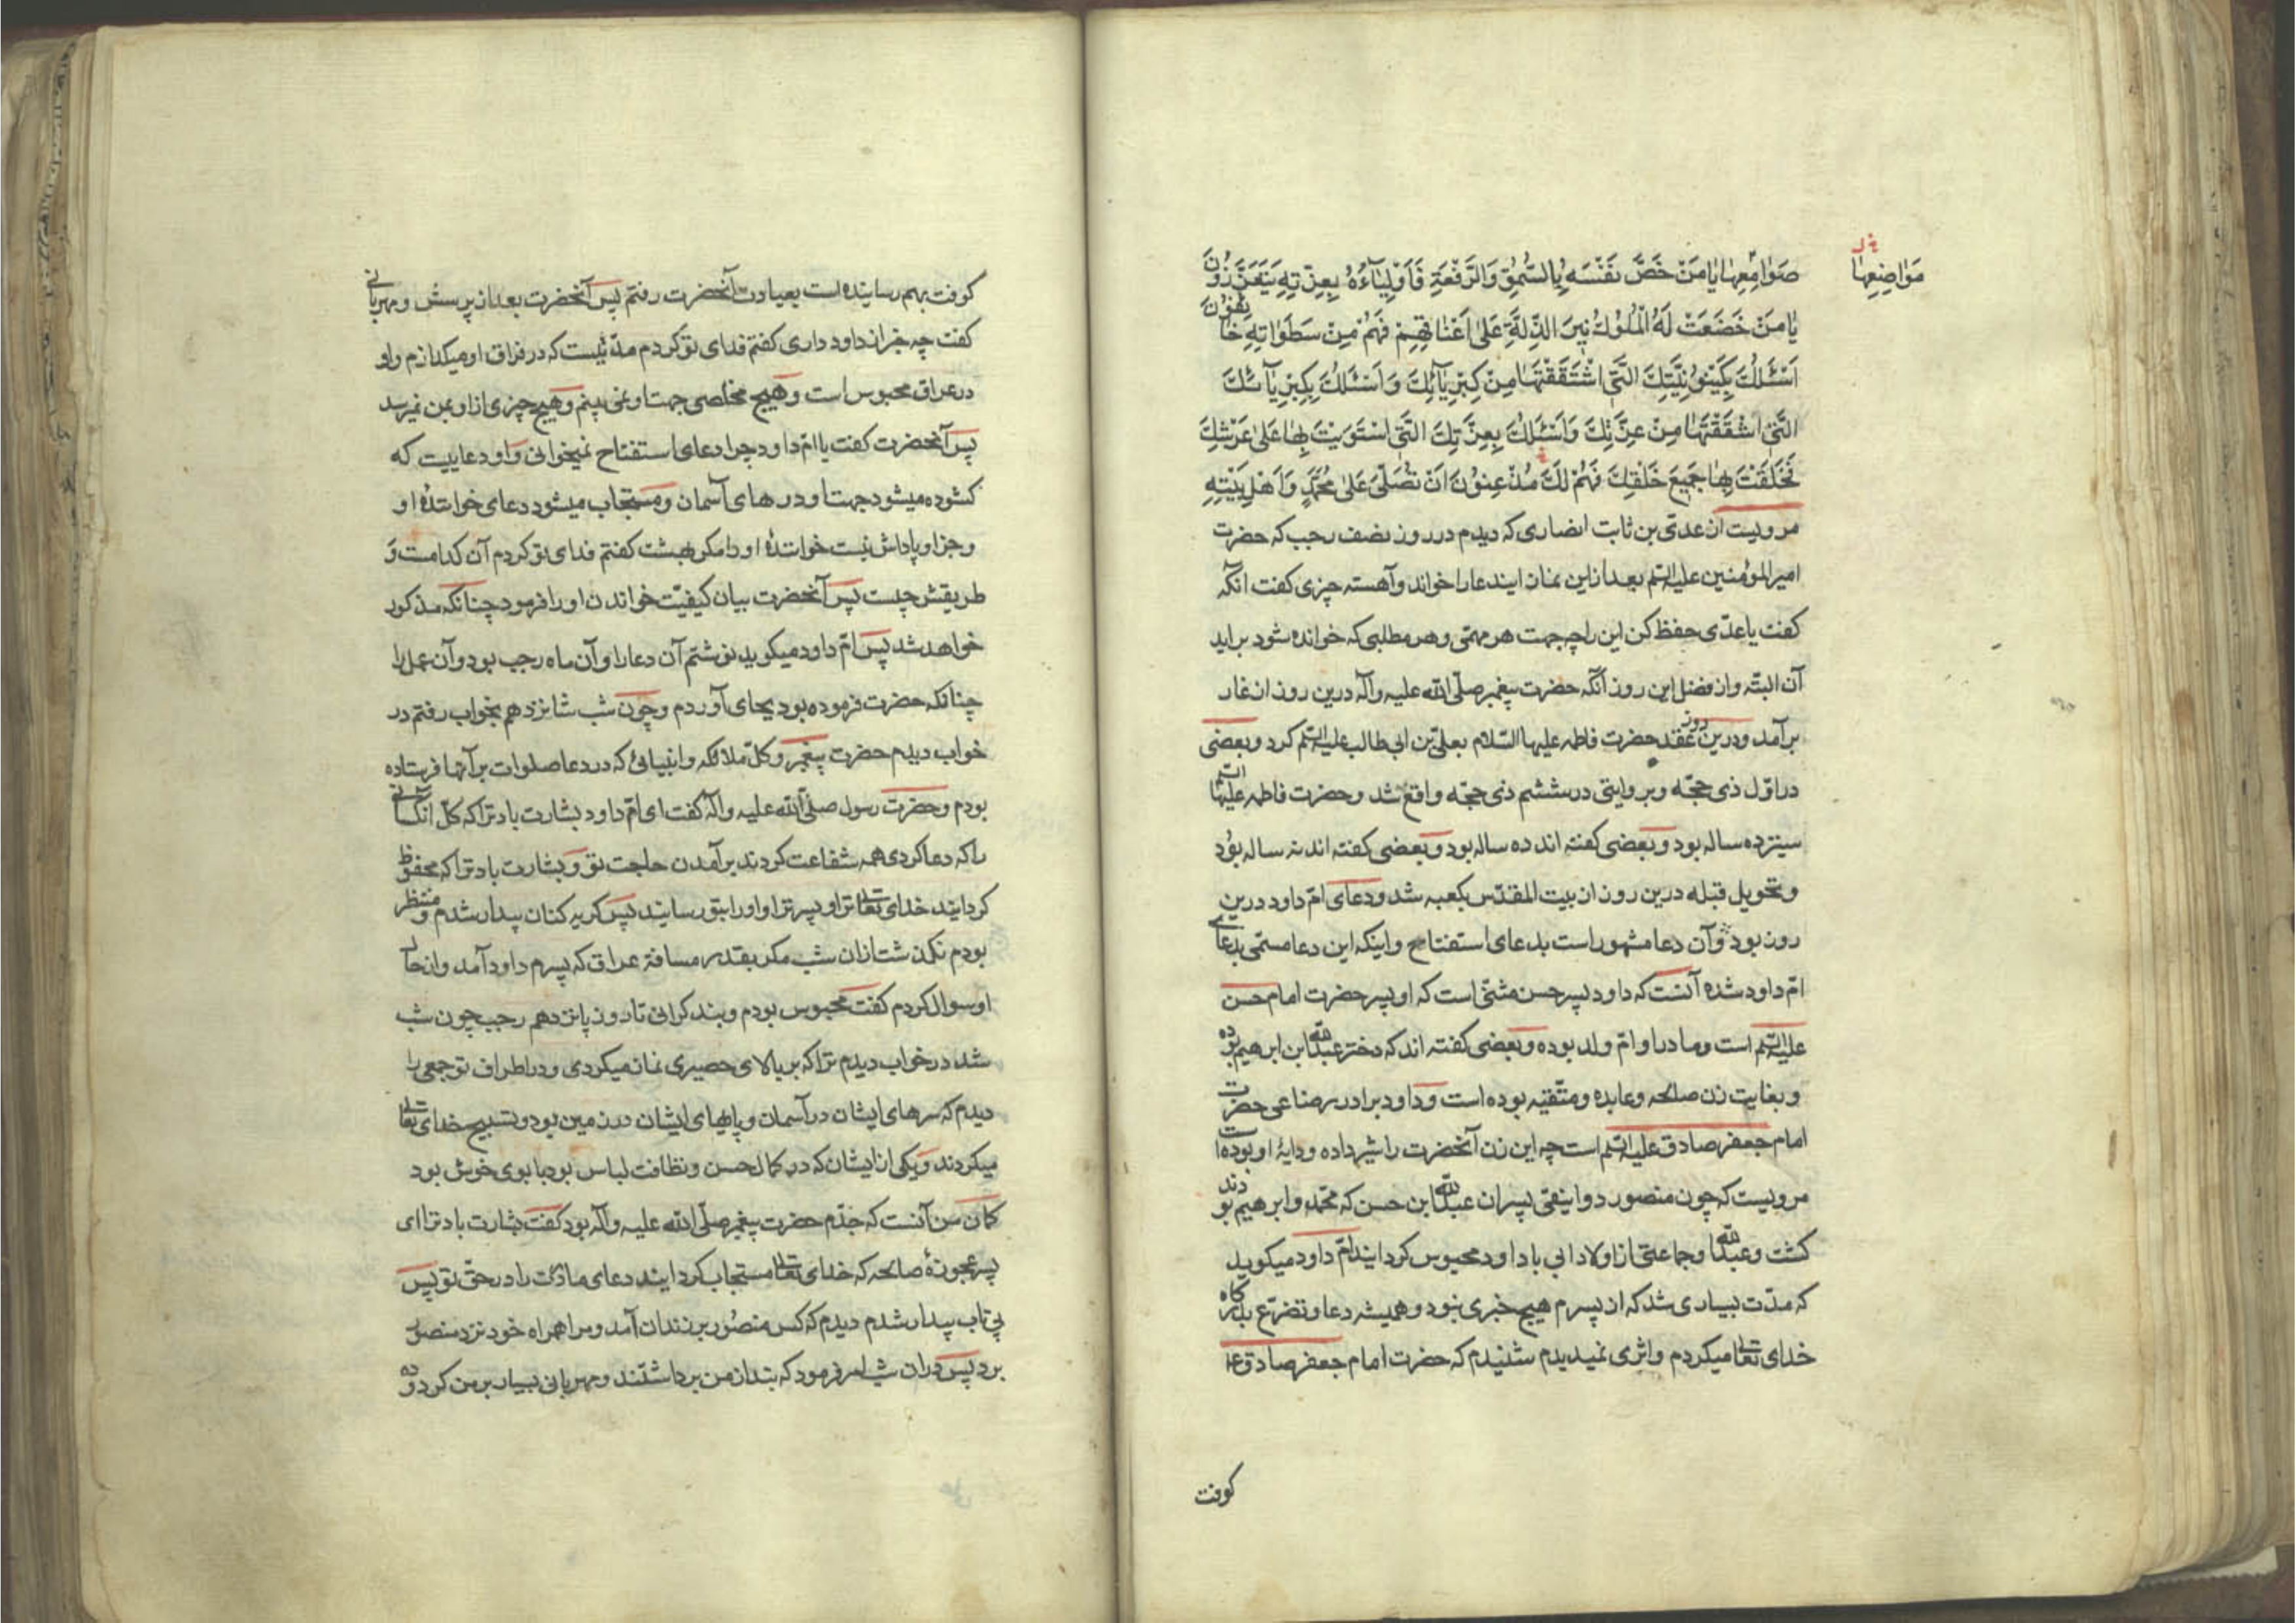 مَوَاضِعِهَا
صَوَامِعِهَا یَا مَنْ خَصَّ نَفْسَهُ بِالسُّمُوِّ وَالرَّفْعَةِ فَاَوْلِیَآءُهُ بِعِزَّتِهِ یَتَعَزَّزُوْنَ
یَا مَنْ خَضَعَتْ لَهُ الْمُلُوكُ نِیرَ الذِّلَّةِ عَلٰی اَعْنَاقِهِمْ فَهُمْ مِنْ سَطَوَاتِهِ خَائِفُوْنَ
اَسْئَلُكَ بِكَیْنُوْنِیَّتِكَ الَّتِی اشْتَقَقْتَهَا مِنْ كِبْرِیَآئِكَ وَ اَسْئَلُكَ بِكِبْرِیَآئِكَ
الَّتِی اشْتَقَقْتَهَا مِنْ عِزَّتِكَ وَاَسْئَلُكَ بِعِزَّتِكَ الَّتِی اسْتَوَیْتَ بِهَا عَلٰی عَرْشِكَ
فَخَلَقْتَ بِهَا جَمِیْعَ خَلْقِكَ فَهُمْ لَكَ مُذْعِنُوْنَ اَنْ تُصَلِّیَ عَلٰی مُحَمَّدٍ وَ اَهْلِ بَیْتِهِ
مرویست از عدیّ بن ثابت انصاری که دیدم در روز نصف رجب که حضرت
امیرالمؤمنین علیه السّلم بعد از این نماز ایندعا را خواند و آهسته چیزی گفت آنگه
گفت یا عدّی حفظ کن این را چه جهت هر مهمّی و هر مطلبی که خوانده شود براید
آن البتّه و از فضل این روز آنکه حضرت پیغمبر صلّی الله علیه وآله درین روز از غار
برآمد و درین روز عقد حضرت فاطمه علیها السّلام بعلیّ بن ابی طالب علیه السّلم کرد و بعضی
در اوّل ذی حجّه و بروایتی در ششم ذی حجّه واقع شد و حضرت فاطمه علیها السّلم
سیزده ساله بود و بعضی گفته اند ده ساله بود و بعضی گفته اند نه ساله بود
و تحویل قبله درین روز از بیت المقدّس بکعبه شد و دعای امّ داود درین
روز بود و آن دعا مشهور است بدعای استفتاح و اینکه این دعا مسمّی بدعای
امّ داود شده آنست که داود پسر حسن مثنّی است که او پسر حضرت امام حسن
علیه السّلم است و مادر او امّ ولد بوده و بعضی گفته اند که دختر عبدالله ابن ابرهیم بوده
و بغایت زن صالحه و عابده و متّقیه بوده است و داود برادر رضاعی حضرت
امام جعفر صادق علیه السّلم است چه این زن آنحضرت را شیر داده و دایۀ او بوده است
مرویست که چون منصور دوانیقی پسران عبدالله ابن حسن که محمّد و ابرهیم بودند
کشت و عبدالله را و جماعتی از اولاد ابی با داود محبوس گردانید امّ داود میگوید
که مدّت بسیاری شد که از پسرم هیچ خبری نبود و همیشه دعا و تضرّع بدرگاه
خدای تعالی میکردم و اثری نمیدیدم شنیدم که حضرت امام جعفر صادق ع
کوفت
کوفت بهم رسانیده است بعیادت آنحضرت رفتم پس آنحضرت بعد از پرسش و مهربانی
گفت چه خبر از داود داری گفتم فدای تو کردم مدّتیست که در فراق او میگدازم و او
در عراق محبوس است و هیچ مخلصی جهت او نمی بینم و هیچ چیزی از او بمن نمیرسد
پس آنحضرت گفت یا امّ داود چرا دعای استفتاح نمیخوانی و او دعاییست که
کشوده میشود جهت او درهای آسمان و مستجاب میشود دعای خوانندۀ او
و جزا و پاداش نیست خوانندۀ او را مگر بهشت گفتم فدای تو کردم آن کدامست و
طریقش چیست پس آنحضرت بیان کیفیّت خواندن او را فرمود چنانکه مذکور
خواهد شد پس امّ داود میگوید نوشتم آن دعا را و آن ماه رجب بود و آن عمل را
چنانکه حضرت فرموده بود بجای آوردم و چون شب شانزدهم بخواب رفتم در
خواب دیدم حضرت پیغمبر و کلّ ملائکه و انبیائی که در دعا صلوات بر آنها فرستاده
بودم و حضرت رسول صلّی الله علیه وآله گفت ای امّ داود بشارت باد ترا که کلّ آنکسانی
را که دعا کردی همه شفاعت کردند برآمدن حاجت تو و بشارت باد ترا که محفوظ
گردانید خدای تعالی ترا و پسر ترا و او را بتو رسانید پس گریه کنان بیدار شدم و منتظر
بودم نگذشت از آن شب مگر بقدر مسافة عراق که پسرم داود آمد و از حال
او سوال کردم گفت محبوس بودم و بند گرانی تا روز پانزدهم رجب چون شب
شد در خواب دیدم ترا که بر بالای حصیری نماز میکردی و در اطراف تو جمعی را
دیدم که سرهای ایشان در آسمان و پاهای ایشان در زمین بود و تسبیح خدای تعالی
میکردند و یکی از ایشان که در کمال حسن و نظافت لباس بود با بوی خوش بود
کمان من آنست که جدّم حضرت پیغمبر صلّی الله علیه وآله بود گفت بشارت باد ترا ای
پسر عجوزۀ صالحه که خدای تعالی مستجاب گردانید دعای مادرت را در حقّ تو پس
بی تاب بیدار شدم دیدم که کس منصور بر زندان آمد و مرا همراه خود نزد منصور
برد پس در آن شب امر فرمود که بند از من برداشتند و مهربانی بسیار بر من کرد و ده